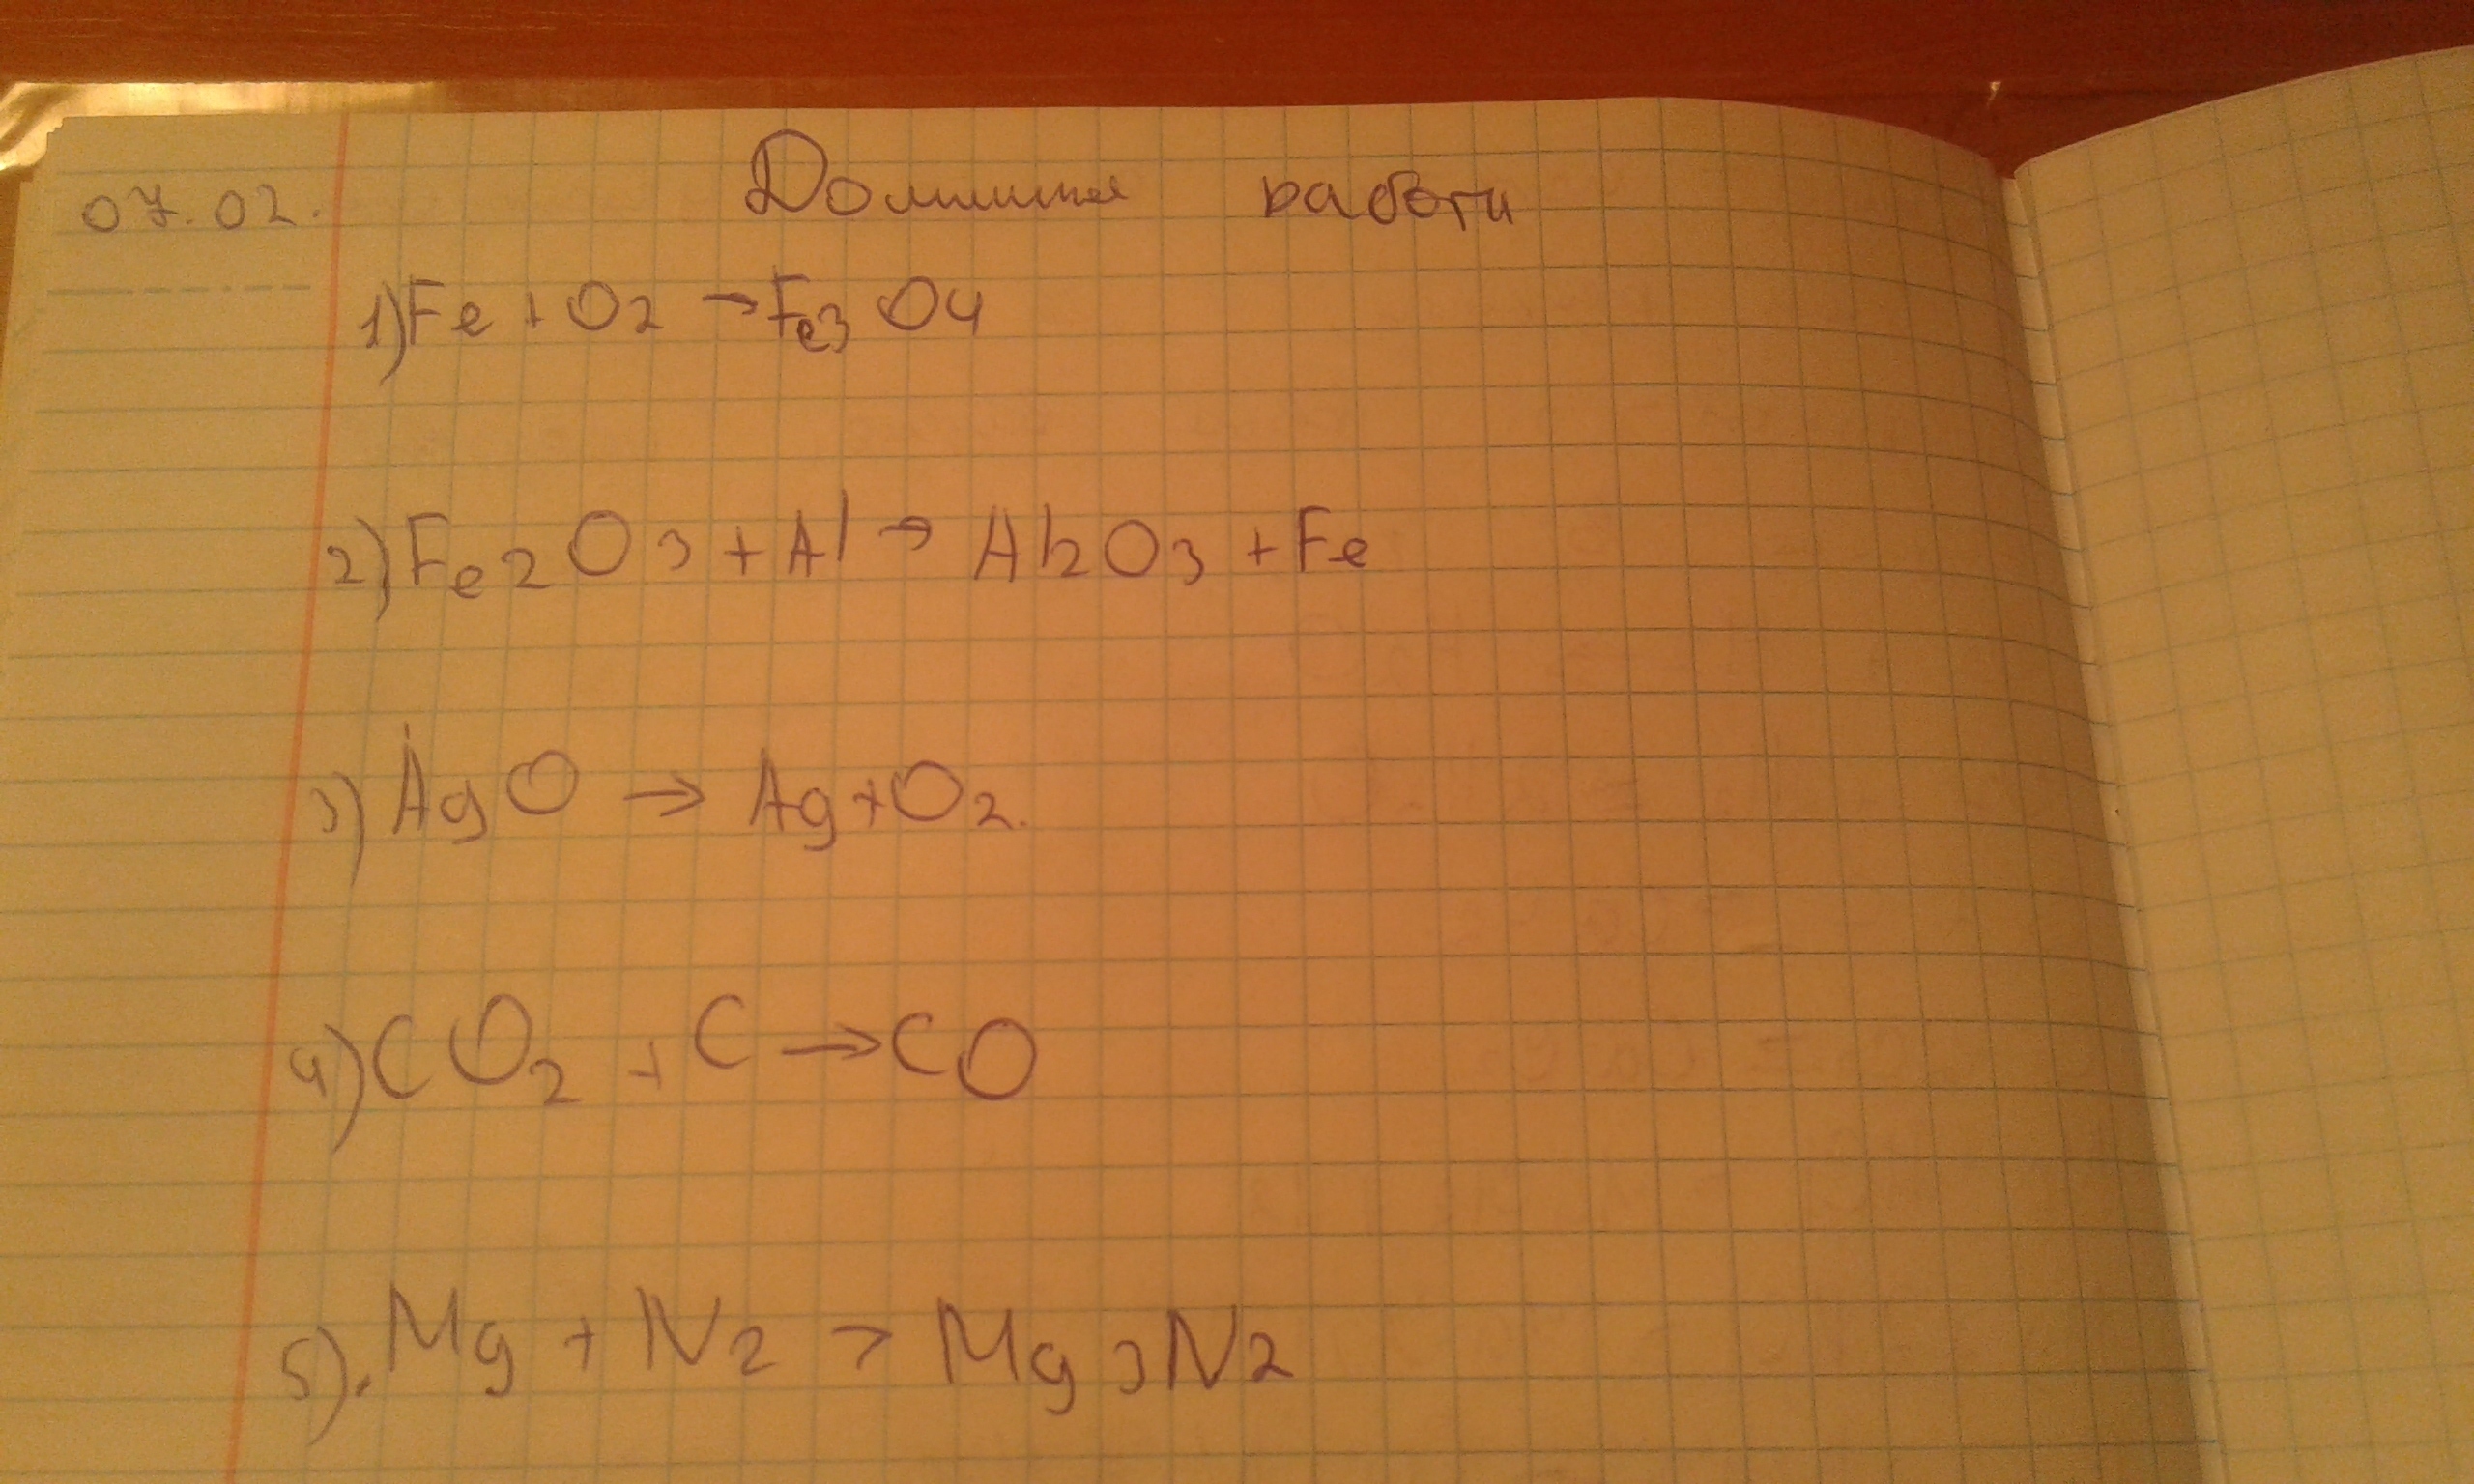 07.02. Домашняя работа
1) Fe + O2 → Fe3O4
2) Fe2O3 + Al → Al2O3 + Fe
3) AgO → Ag + O2.
4) CO2 + C → CO
5). Mg + N2 > Mg3N2